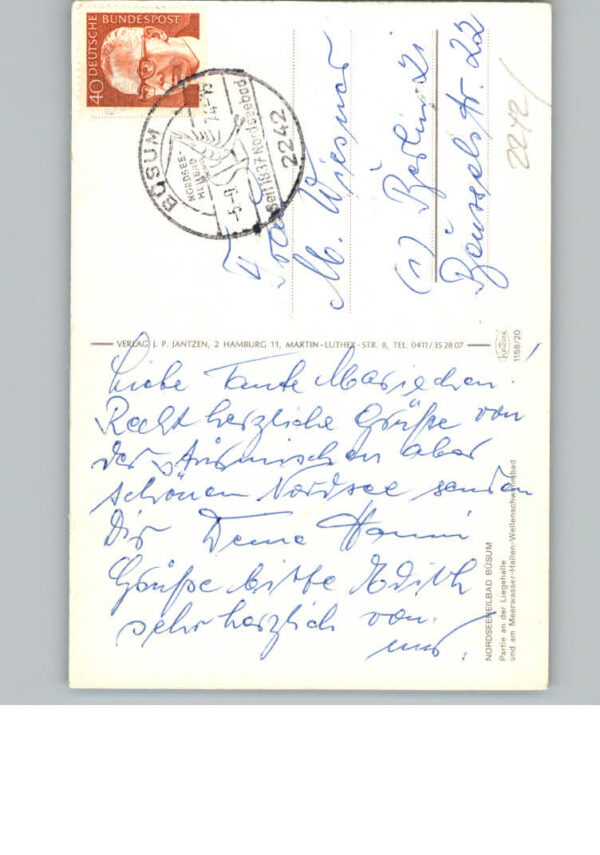 Liebe Tante Mariechen!
Recht herzliche Grüße von
der stürmischen aber
schönen Nordsee senden
Dir Deine Hanni
Grüße bitte Edith
sehr herzlich von
mir.
VERLAG J. P. JANTZEN, 2 HAMBURG 11, MARTIN-LUTHER-STR. 8, TEL. 0411/35 28 07
1156/20
NORDSEEHEILBAD BÜSUM
Partie an der Liegehalle
und am Meerwasser-Hallen-Wellenschwimmbad
40 DEUTSCHE BUNDESPOST
BÜSUM
NORDSEE-
HEILBAD
-5.-9.74-15
Seit 1837 Nordseebad
2242
Frau
M. Wiesner
(1) Berlin 21
Beusselstr. 22
2242